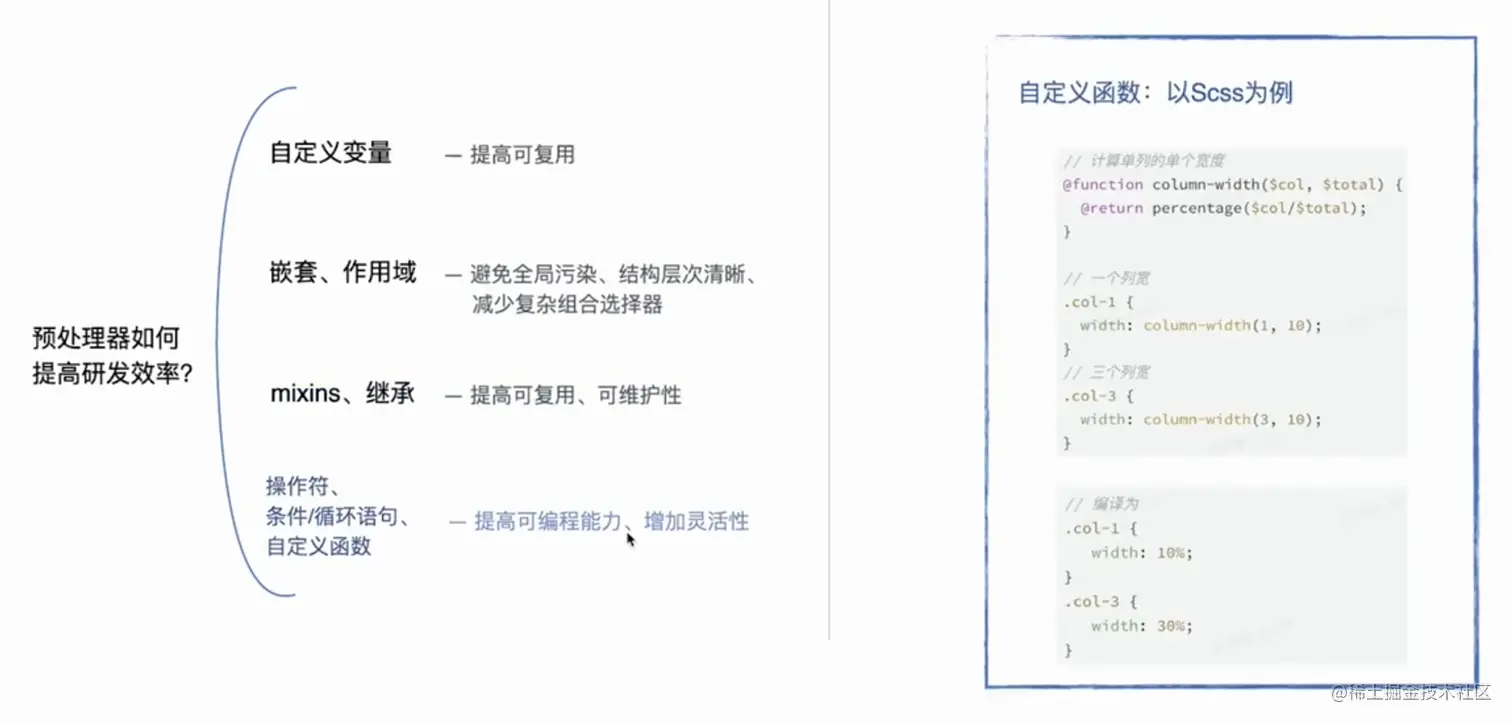 预处理器如何
提高研发效率?
自定义变量 — 提高可复用
嵌套、作用域 — 避免全局污染、结构层次清晰、
减少复杂组合选择器
mixins、继承 — 提高可复用、可维护性
操作符、
条件/循环语句、
自定义函数 — 提高可编程能力、增加灵活性
自定义函数：以Scss为例
// 计算单列的单个宽度
@function column-width($col, $total) {
@return percentage($col/$total);
}
// 一个列宽
.col-1 {
width: column-width(1, 10);
}
// 三个列宽
.col-3 {
width: column-width(3, 10);
}
// 编译为
.col-1 {
width: 10%;
}
.col-3 {
width: 30%;
}
@稀土掘金技术社区